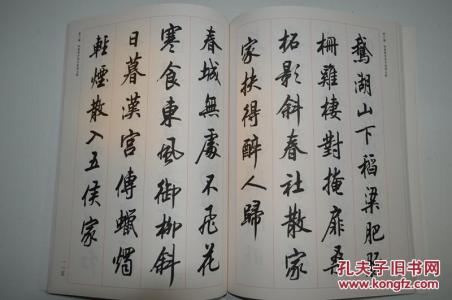 鵝湖山下稻粱肥豚
柵雞棲對掩扉桑
柘影斜春社散家
家扶得醉人歸
春城無處不飛花
寒食東風御柳斜
日暮漢宮傳蠟燭
輕煙散入五侯家
孔夫子旧书网